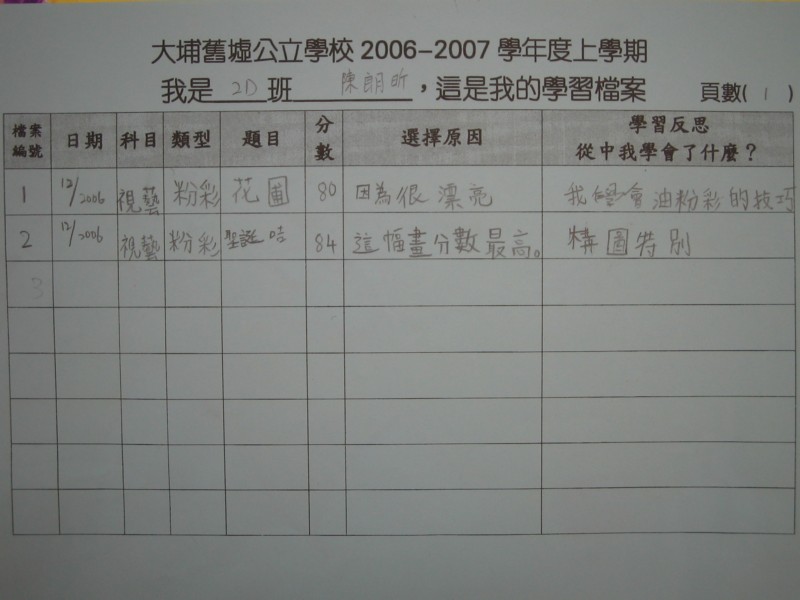 大埔舊墟公立學校 2006-2007 學年度上學期
我是 2D 班 陳朗昕，這是我的學習檔案 頁數( 1 )
檔案編號 日期 科目 類型 題目 分數 選擇原因 學習反思 從中我學會了什麼？
1 12/2006 視藝 粉彩 花圃 80 因為很漂亮 我學會油粉彩的技巧
2 12/2006 視藝 粉彩 聖誕咭 84 這幅畫分數最高。 構圖特別
3